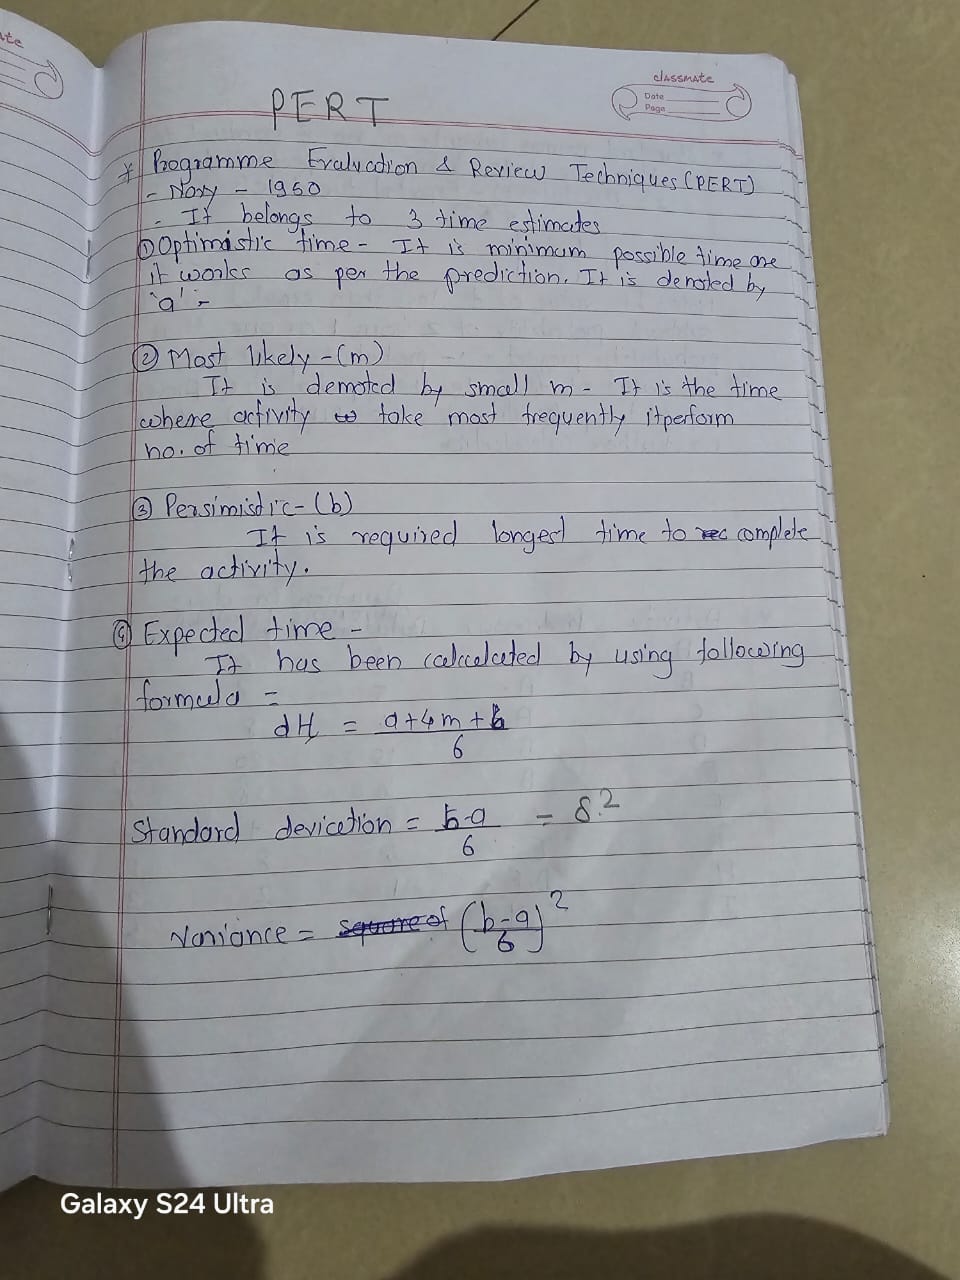 ate
classmate
Date
Page
PERT
* Programme Evaluation & Review Techniques (PERT)
- Navy - 1960
- It belongs to 3 time estimates
① Optimistic time - It is minimum possible time one
it works as per the prediction. It is denoted by
'a' -
② Most likely - (m)
It is demoted by small m - It is the time
where activity take most frequently itperform
no. of time
③ Persimistic - (b)
It is required longest time to complete
the activity.
④ Expected time -
It has been calculated by using following
formula =
= a+4m+b
6
Standard deviation = b-a = 8.2
6
Variance = square of (b-a)2
6
Galaxy S24 Ultra